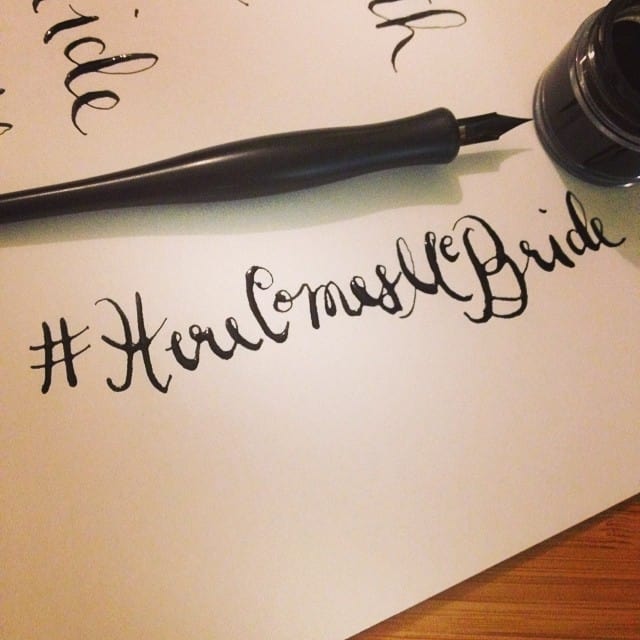 ride
th
#HereComesMcBride